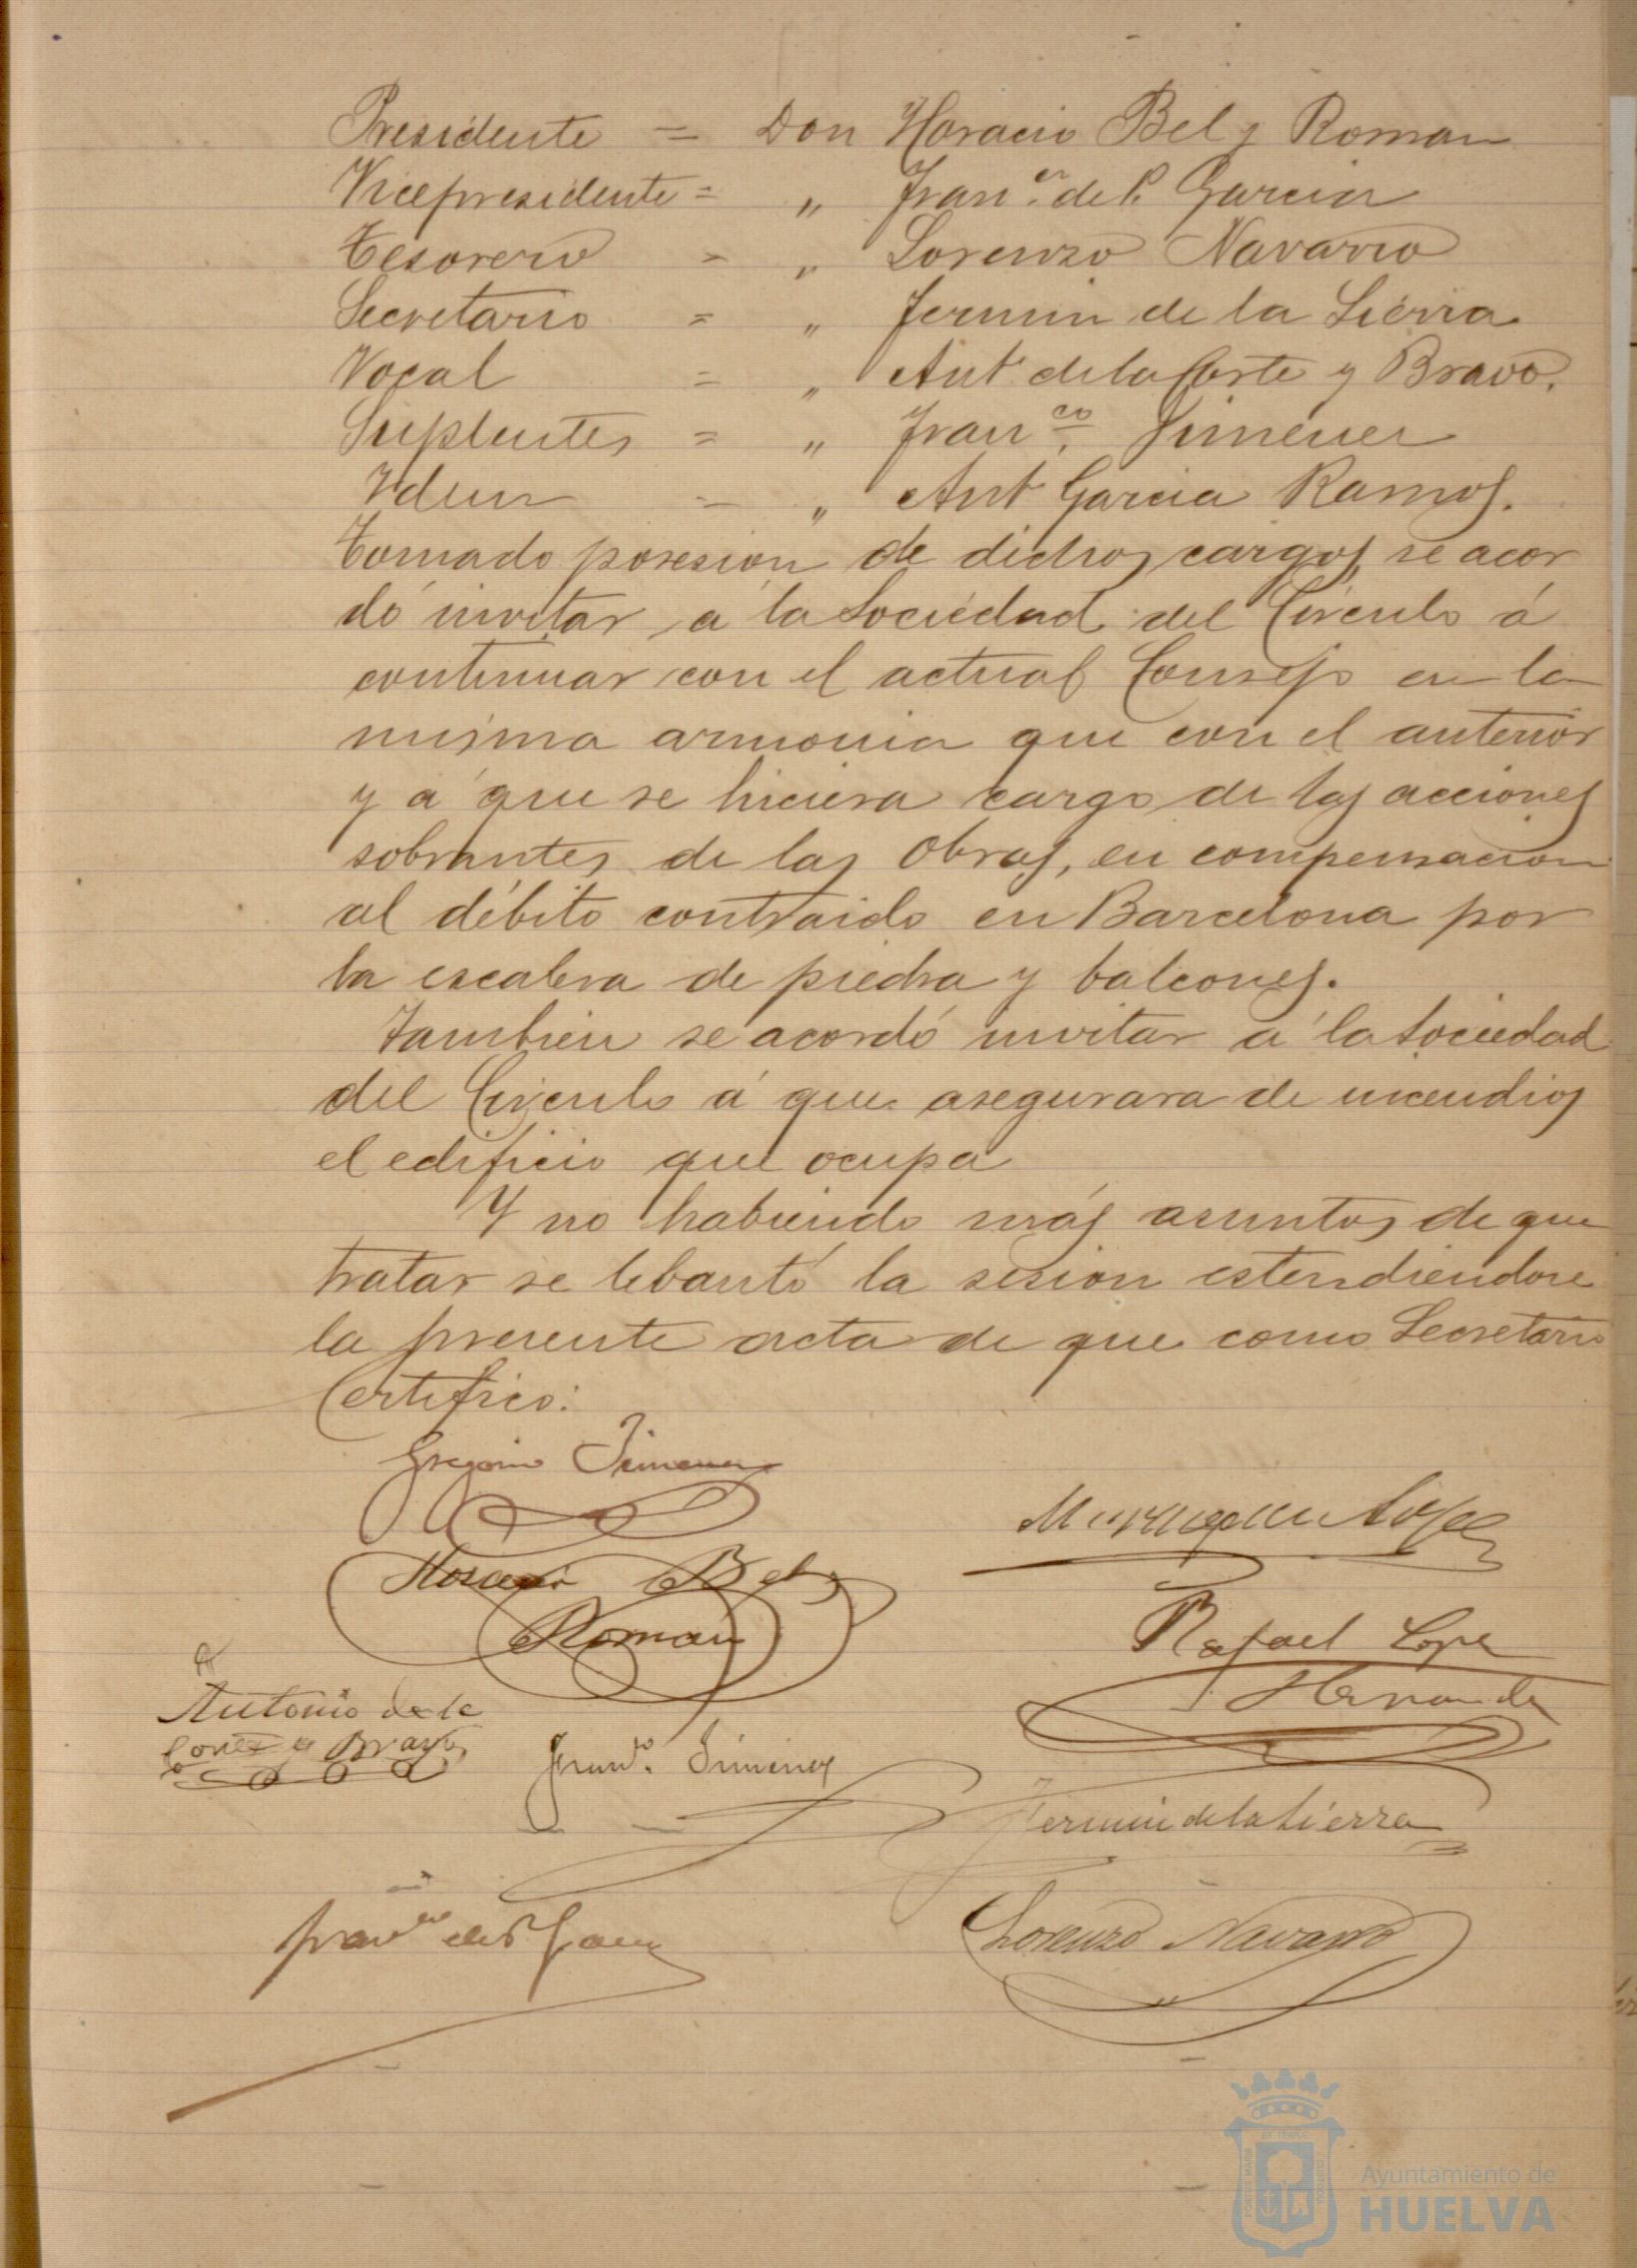 Presidente = Don Horacio Bel y Roman
Vicepresidente = „ Fran.co de P. Garcia
Tesorero = „ Lorenzo Navarro
Secretario = „ Fermin de la Sierra
Vocal = „ Ant.º de la Corte y Bravo.
Suplentes = „ Fran.co Jimenez
Idem = „ Ant.º Garcia Ramos.
Tomado posesion de dichos cargos, se acor
dó invitar á la Sociedad del Círculo á
continuar con el actual Consejo en la
misma armonia que con el anterior
y á que se hiciera cargo de las acciones
sobrantes de las Obras, en compensacion
al débito contraido en Barcelona por
la escalera de piedra y balcones.
Tambien se acordó invitar á la Sociedad
del Círculo á que asegurara de incendios
el edificio que ocupa
Y no habiendo más asuntos de que
tratar se lebantó la sesion estendiendose
la presente acta de que como Secretario
Certifico:
Gregorio Jimenez
Horacio Bel y
Roman
Rafael Lopez
Hernandez
Antonio de la
Corte y Bravo
Fran.co Jimenez
Fermin de la Sierra
Fran.co de P. Garcia
Lorenzo Navarro
Ayuntamiento de
HUELVA